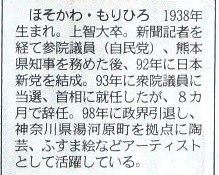 ほそかわ・もりひろ　1938年
生まれ。上智大卒。新聞記者を
経て参院議員（自民党）、熊本
県知事を務めた後、92年に日本
新党を結成。93年に衆院議員に
当選、首相に就任したが、8カ
月で辞任。98年に政界引退し、
神奈川県湯河原町を拠点に陶
芸、ふすま絵などアーティスト
として活躍している。